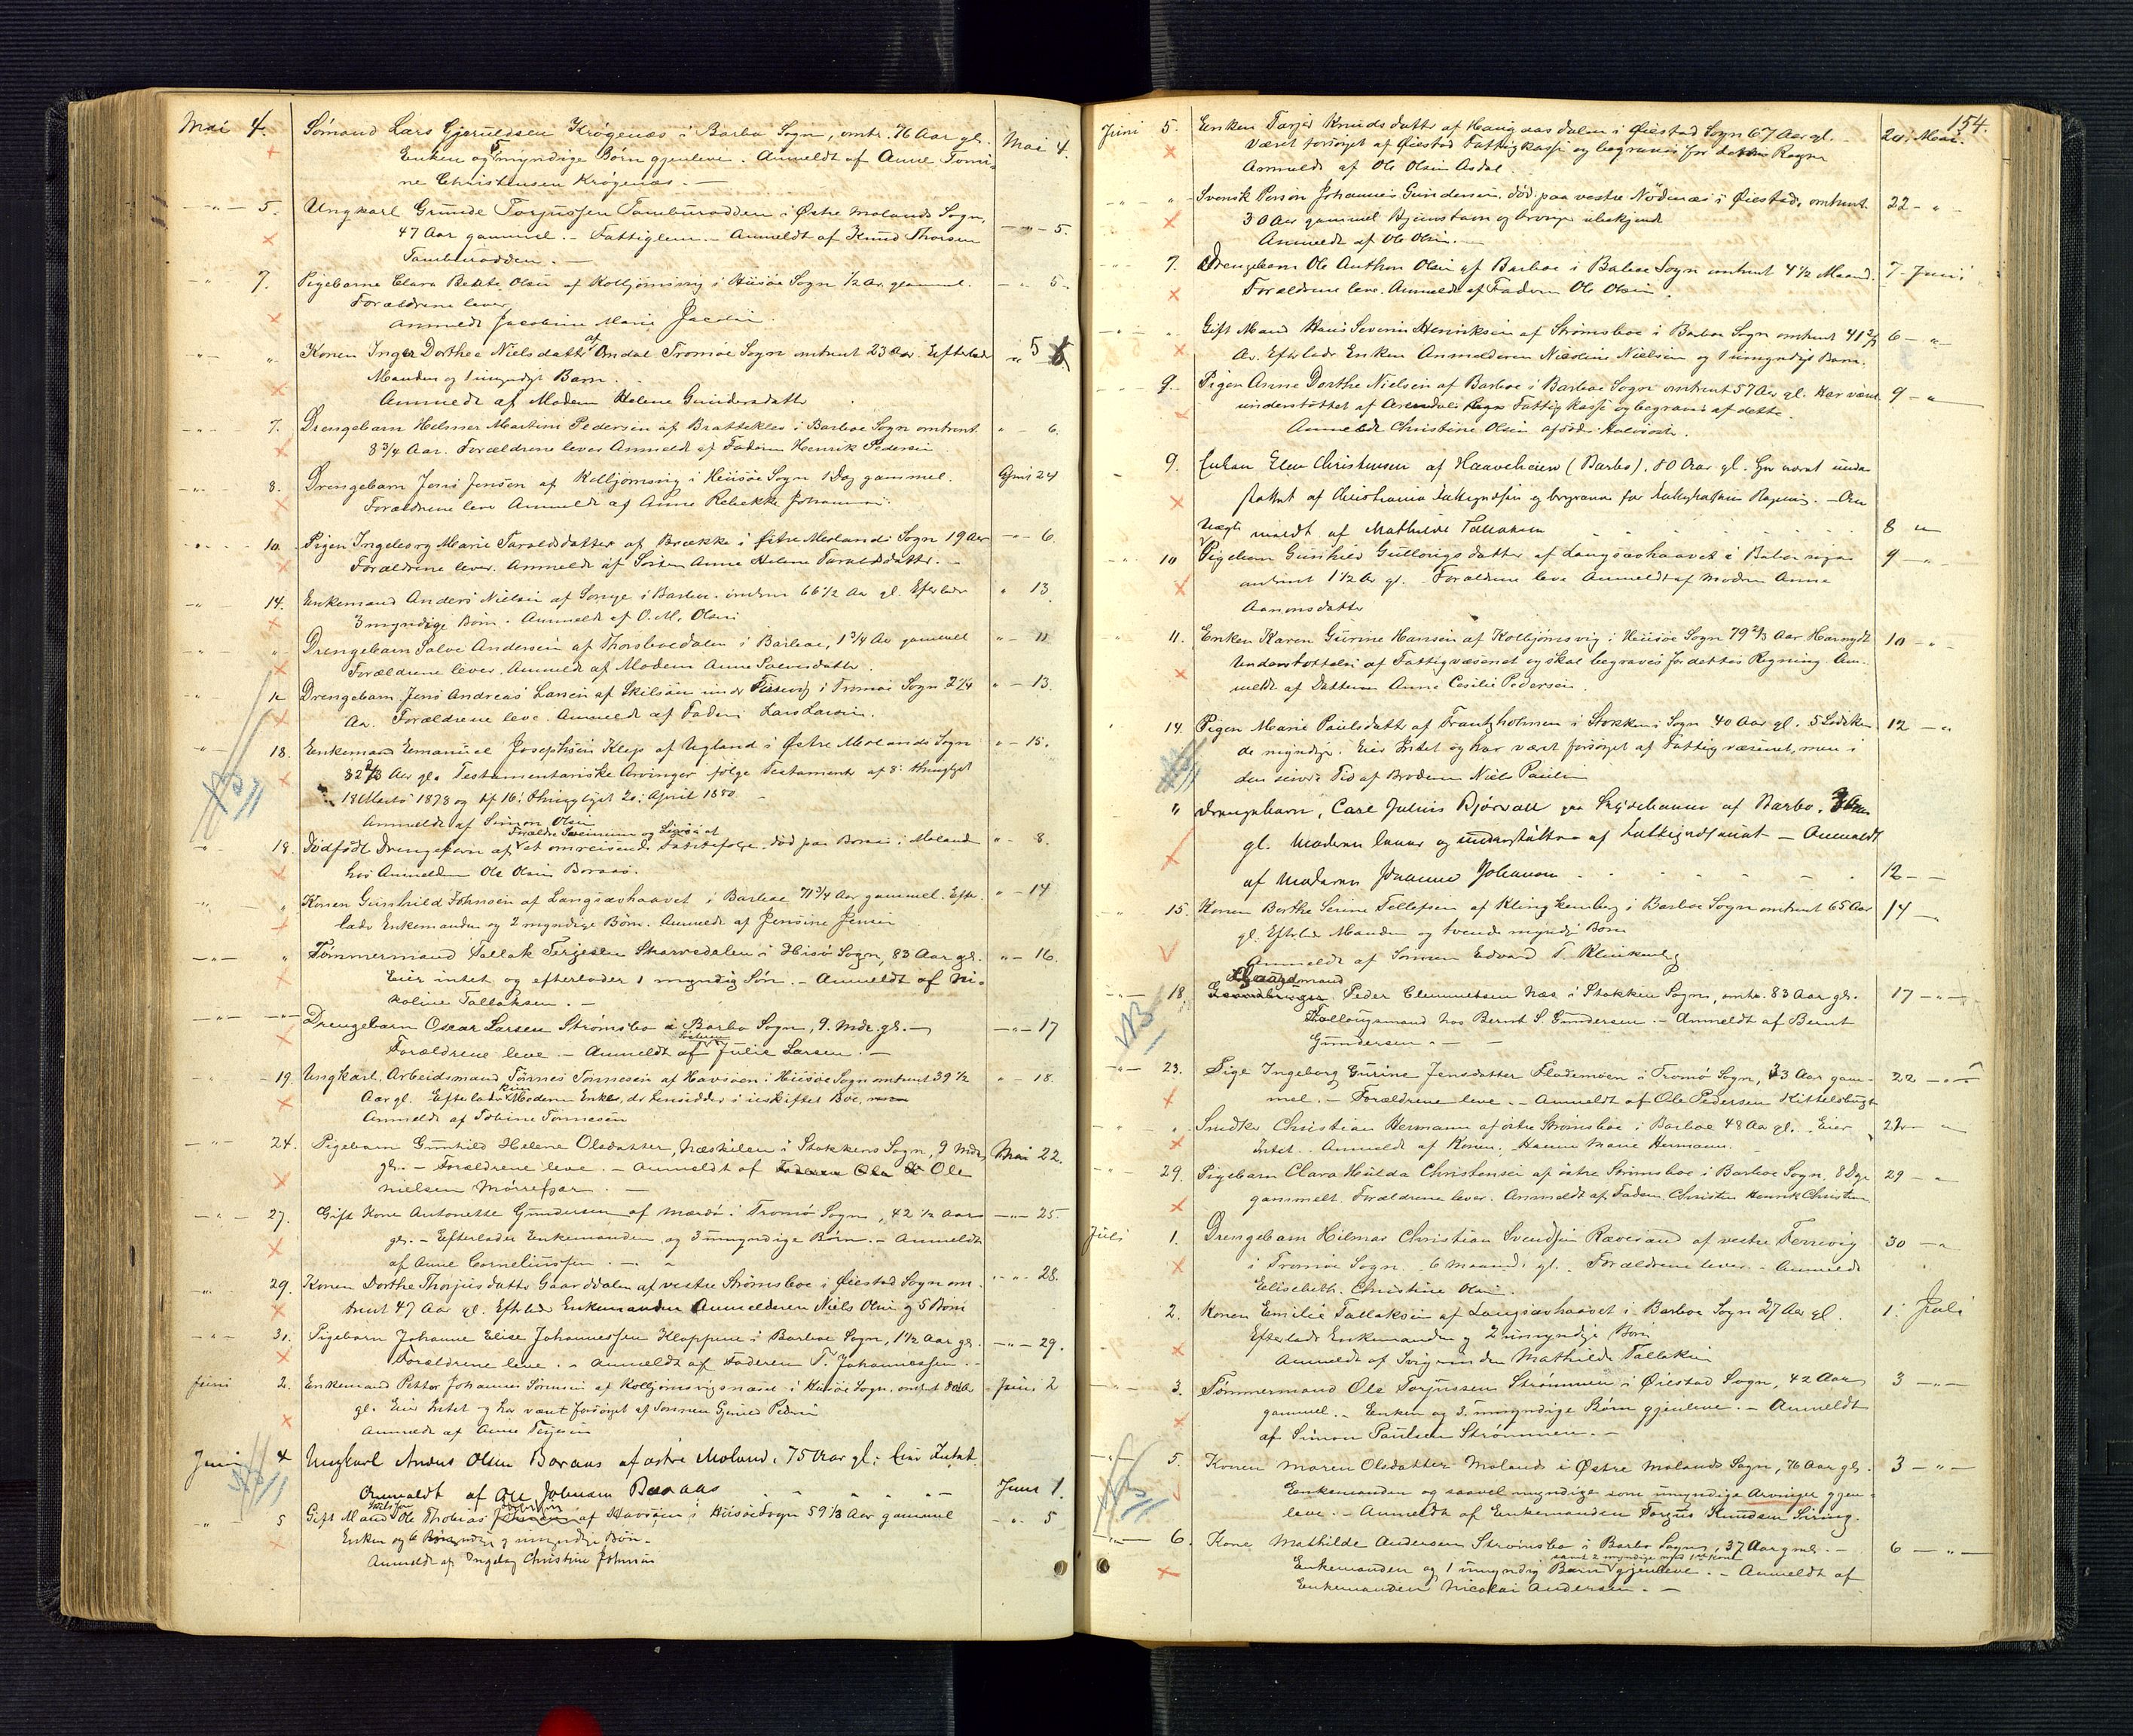 Mai 4. Sömand Lars Gjeruldsen Krögenæs i Barbo Sogn, omtr. 76 Aar gl. Mai 4.
Enken og 5 myndige Børn gjenleve. Anmeldt af Anne Tomi-
ne Christensen Krögenæs. —
—"— 5. Ungkarl Grunde Torjussen Tamburodden i Østre Molands Sogn, —"— 5.
47 Aar gammel. — Fattiglem. — Anmeldt af Knud Thorsen
Tamburodden. —
—"— 7. Pigebarn Clara Olsen af Kolbjörnsvig i Hisöe Sogn ½ Aar gammel. —"— 5.
Forældrene lever.
Anmeldt Jacobine Marie
—"— " Konen Inger Dorthea Nielsdatter af Omdal Tromöe Sogn omtrent 23 Aar. Efterlader " 5
Manden og 1 umyndigt Barn.
Anmeldt af Modern Helene Gundersdatter
—"— 7. Drengebarn Helmer Martin Pedersen af Bratteklev i Barboe Sogn omtrent " — 6.
8¾ Aar. Forældrene lever Anmeldt af Faderen Henrik Pedersen
—"— 8. Drengebarn Jens Jensen af Kolbjörnsvig i Hisöe Sogn 1 Dag gammel. April 24
Forældrene leve Anmeldt af Anne Rebekke
—"— 10. Pigen Ingeborg Marie Taraldsdatter af Brække i Østre Molands Sogn 19 Aar —"— 6.
Forældrene lever. Anmeldt af Søster Anne Helene Taraldsdatter. —
—"— 14. Enkemand Anders Nielsen af Songe i Barboe omtrent 66½ Aar gl. Efterlader " 13.
3 myndige Børn. Anmeldt af O. M. Olsen
—"— " Drengebarn Salve Andersen af Thorsboedalen i Barboe, 1¾ Aar gammel " — 11
Forældrene lever. Anmeldt af Modern Anne Salvesdatter.
Drengebarn Jens Andreas Larsen af Skilsöen under i Tromöe Sogn 2¼ " — 13.
Aar. Forældrene leve. Anmeldt af Faderen Lars Larsen.
—"— 18. Enkemand Emanuel Josephsen Klep af Ugland i Østre Molands Sogn " — 15.
82⅔ Aar gl. Testamentariske Arvinger følge Testamente af 8. thinglyst
18 Marts 1873 og af 16. thinglyst 20. April 1880. —
Anmeldt af Simon Olsen
Forældre og
—"— 18. Dödfödt Drengebarn af et omreisende Taterfølge. död paa Boraas i Moland " — 8.
hos Anmelderen Ole Olsen Boraas.
—"— " Konen Gunhild Johnsen af Langsævhaavet i Barboe 71¾ Aar gammel. Efter- " — 14
lader Enkemanden og 2 myndige Børn. Anmeldt af Jensine Jensen
—"— " Tømmermand Tallak Terjesen Skarvedalen i Hisö Sogn, 83 Aar gl. " — 16.
Eier intet og efterlader 1 myndig Søn. — Anmeldt af Ni-
koline Tallaksen. —
—"— —"— Drengebarn Oscar Larsen Strømsbo i Barbo Sogn, 9. Mdr. gl. — —"— 17
Forældrene leve. — Anmeldt af Julie Larsen. —
—"— 19. Ungkarl. Arbeidsmand Tönnes Tönnesen af Havsöen i Hisöe Sogn omtrent 39½ " — 18.
Aar gl. Efterlader kun Modern Enke, der hensidder i uskiftet Boe,
Anmeldt af Tobine Tönnesen
—"— 24. Pigebarn Gunhild Helene Olsdatter, Næskilen i Stokkens Sogn, 9 Mdr. Mai 22.
gl. — Forældrene leve. — Anmeldt af Faderen Ole Ole
Nielsen Mörrefjær. —
—"— 27. Gift Kone Antonette Gundersen af Mærdö i Tromö Sogn, 42½ Aar —"— 25.
gl. — Efterlader Enkemanden og 3 umyndige Børn. — Anmeldt
af Anne Corneliussen. —
—"— 29. Konen Dorthe Thorjusdatter Gaarddalen af vestre Strömsboe i Øiestad Sogn om- —"— 28.
trent 47 Aar gl. Efterlader Enkemanden Anmelderen Niels Olsen og 5 Børn
—"— 31. Pigebarn Johanne Elise Johannessen Kloppene i Barboe Sogn, 1½ Aar gl. —"— 29.
Forældrene leve. — Anmeldt af Faderen T. Johannessen. —
Juni 2. Enkemand Petter Johannes Sörensen af Kolbjörnsvigsnæset i Hisöe Sogn. omtrent Aar Juni 2
gl. Eier Intet og har været forsörget af Sønnen
Anmeldt af Anne Terjesen
Juni 4 Ungkarl Anders Olsen Boraas af østre Moland. 75 Aar gl. Eier Intet.
Anmeldt af Ole Johnsen Boraas Juni 1.
" 5 Gift Mand Ole Thobias af Havsöen i Hisöe Sogn 59⅓ Aar gammel " 5
Enken og 6 myndige og umyndige Børn.
Anmeldt af Ingeborg Christine Johnsen
154.
Juni 5. Enken Tarjer Knudsdatter af Haugaasdalen i Øiestad Sogn 67 Aar gl. 24 Mai.
Været forsörget af Øiestad Fattigkasse og begraves for dettes Regn.
Anmeldt af Ole Olsen Asdal.
" " Svensk Person Johannes Gundersen, död paa vestre Nödenæs i Øiestad, omtrent 22 — "
30 Aar gammel Hjemstavn og ubekjendt
Anmeldt af Ole Olsen. —
—"— 7. Drengebarn Ole Anthon Olsen af Barboe i Barboe Sogn omtrent 4½ Maaned. 7 Juni
Forældrene leve. Anmeldt af Faderen Ole Olsen.
—"— " Gift Mand Hans Severin Henriksen af Strömsboe i Barboe Sogn omtrent 41⅔ 6 — "
Aar. Efterlader Enken Anmelderen Nicoline Nielsen og 1 umyndigt Barn.
—"— 9. Pigen Anne Dorthe Nielsen af Barboe i Barboe Sogn omtrent 57 Aar gl. Har været 9 — "
understöttet af Arendals Fattigkasse og begraves af dette.
Anmeldt Christine Olsen
9. Enken Elen Christensen af Haaveheien (Barbo). 80 Aar gl. Har været under-
støttet af Christiania Fattigvæsen og begraves for Fattigkassens Regning. — An-
meldt af Mathilde Tallaksen 8 "
10 Pigebarn Gunhild Gullovigsdatter af Langsævhaavet i Barbo sogn 9 — "
omtrent 1½ Aar gl. Forældrene leve Anmeldt af Modern Anne
Aanonsdatter
" 11. Enken Karen Gurine Hansen af Kolbjörnsvig i Hisöe Sogn 79⅔ Aar Har nydt 10 — "
Understöttelse af Fattigvæsenet og skal begraves for dettes Regning An-
meldt af Datteren Anne Cecilie Pedersen.
14. Pigen Marie Paulsdatter af Frantzholmen i Stokkens Sogn 40 Aar gl. 5 Södsken- 12 — "
de myndige. Eier Intet og har været forsörget af Fattigvæsenet, men i
den senere Tid af Broderen Niels Paulsen
" Drengebarn, Carl Julius Bjørvall paa Skydebanen af Barbo.
gl. Moderen lever og understøttes af Fattigvæsenet — Anmeldt
af Moderen Johanne Johansen 12 —
—"— 15. Konen Berthe Serine Tellefsen af Klingkenberg i Barboe Sogn omtrent 65 Aar 14 — "
gl. Efterlader Manden og tvende myndige Børn
Anmeldt af Sønnen Edvard T. Klinkenberg
Laugdmand
—"— 18. Peder Clemmetsen Næs i Stokken Sogn, omtr. 83 Aar gl. 17 — " —
Follaugsmand hos Bernt S. Gundersen. — Anmeldt af Bernt
Gundersen. —
—"— 23. Pige Ingeborg Gurine Jensdatter Flademoen i Tromö Sogn, Aar gam- 22 — " —
mel. — Forældrene leve. — Anmeldt af Ole Pedersen Kittelsbugt
—"— " Snedker Christian Hermann af østre Strömsboe i Barboe 48 Aar gl. Eier
Intet. Anmeldt af Konen Hanne Marie Hermann.
—"— 29. Pigebarn Clara Hulda Christensen af østre Strömsboe i Barboe Sogn, 8 Dge 29 — "
gammelt. Forældrene lever. Anmeldt af Faderen Christen Henrik Christen
Juli 1. Drengebarn Hilmar Christian Svendsen Rævesand af vestre Færvig 30 — "
i Tromöe Sogn. 6 maaneder gl. Forældrene lever. Anmeldt
Elisebeth Christine Olsen.
2. Konen Emilie Tallaksen af Langsævhaavet i Barboe Sogn 27 Aar gl. 1. Juli
Efterlader Enkemanden og 2 umyndige Børn
Anmeldt af Svigerinden Mathilde Tallaksen
—"— 3. Tømmermand Ole Torjussen Strömmen i Øiestad Sogn, 42 Aar 3 — " —
gammel. — Enken og 3. umyndige Børn gjenleve. — Anmeldt
af Simon Paulsen Strömmen. —
—"— 5. Konen Maren Olsdatter Moland i Østre Molands Sogn, 76 Aar gl. 3 — " —
Enkemanden og saavel myndige som umyndige Arvinger gjen-
leve. — Anmeldt af Enkemanden Torjus Knudsen
—"— 6. Kone Mathilde Andersen Strömsbo i Barbo Sogn, 37 Aar gml. — 6 — " —
samt 2 myndige med 1ste Kone
Enkemanden og 1 umyndig Barn gjenleve. — Anmeldt af
Enkemanden Nicolai Andersen. —